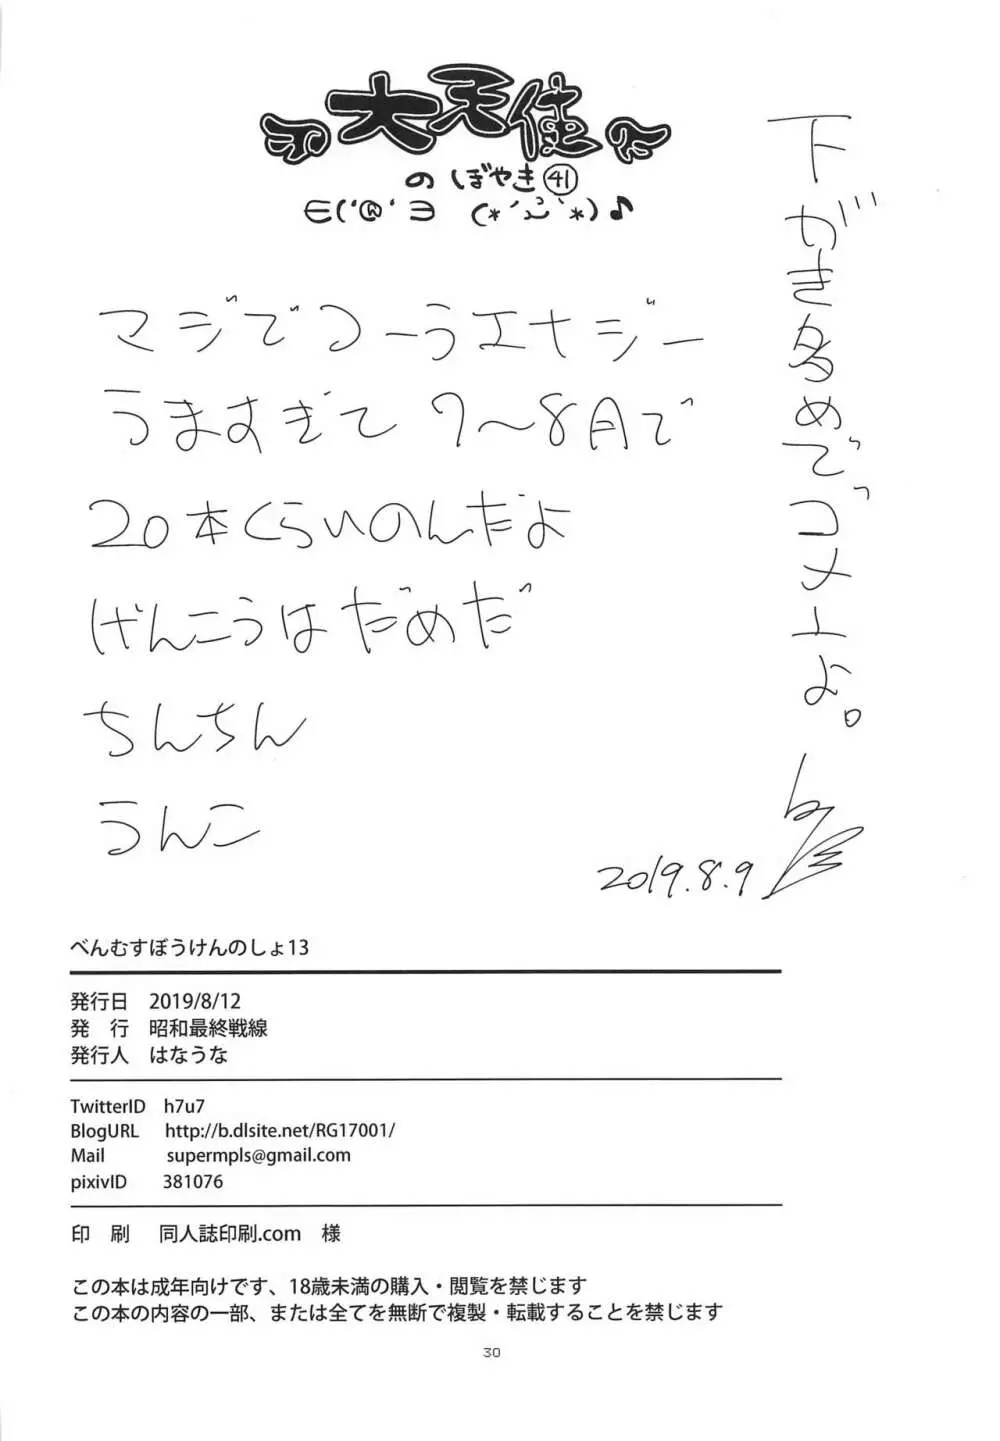 大天使
のぼやき㊶
∈('®'∋ (*´ω`*)♪
マジでコーラエナジー
うますぎて 7〜8月で
20本くらいのんだよ
げんこうはだめだ
ちんちん
うんこ
下がき多めでゴメーよ。
2019.8.9
べんむすぼうけんのしょ13
発行日 2019/8/12
発 行 昭和最終戦線
発行人 はなうな
TwitterID h7u7
BlogURL http://b.dlsite.net/RG17001/
Mail supermpls@gmail.com
pixivID 381076
印 刷 同人誌印刷.com 様
この本は成年向けです、18歳未満の購入・閲覧を禁じます
この本の内容の一部、または全てを無断で複製・転載することを禁じます
30